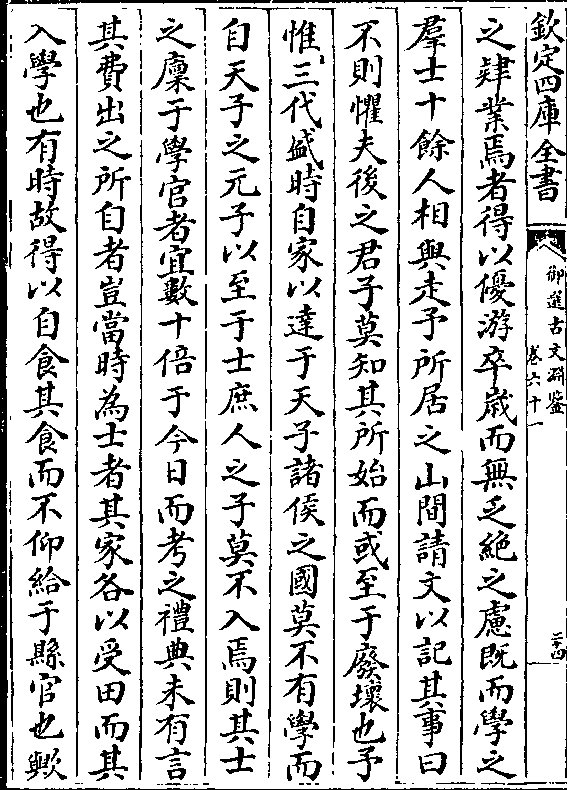 欽定四庫全書
御選古文淵鑒
卷六十一
二十四
之肄業焉者得以優游卒歲而無乏絶之慮既而學之
羣士十餘人相與走予所居之山間請文以記其事曰
不則懼夫後之君子莫知其所始而或至于廢壞也予
惟三代盛時自家以達于天子諸侯之國莫不有學而
自天子之元子以至于士庶人之子莫不入焉則其士
之廩于學官者宜數十倍于今日而考之禮典未有言
其費出之所自者豈當時為士者其家各以受田而其
入學也有時故得以自食其食而不仰給于縣官也歟